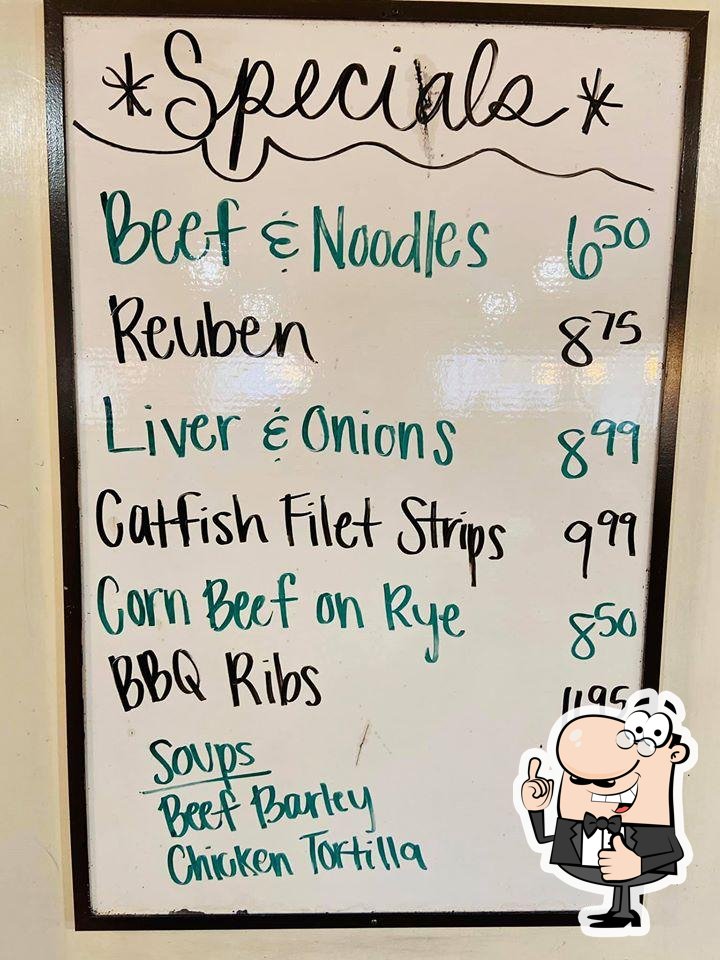 *Specials*
Beef & Noodles 6.50
Reuben 8.75
Liver & Onions 8.99
Catfish Filet Strips 9.99
Corn Beef on Rye 8.50
BBQ Ribs 11.95
Soups
Beef Barley
Chicken Tortilla